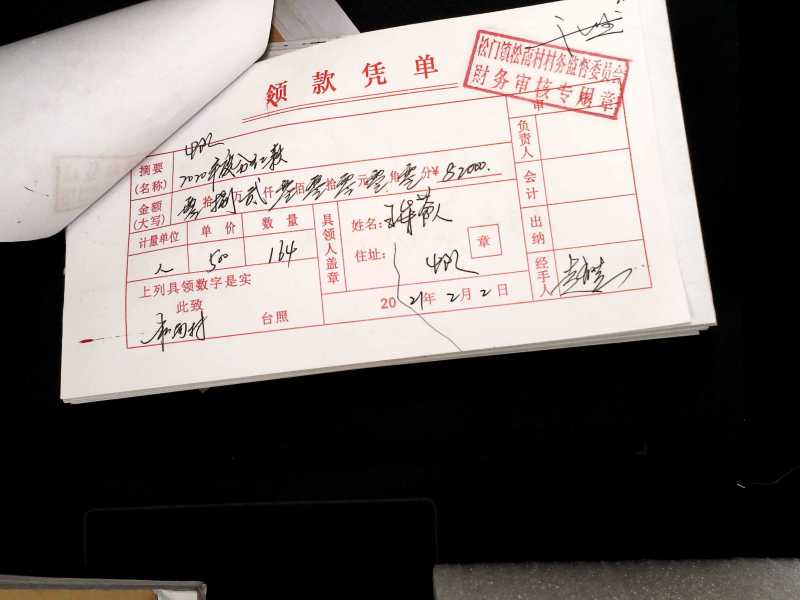 领款凭单
松门镇松南村村务监督委员会
财务审核专用章
摘要
(名称)
2020年度分红款
金额
(大写)
零拾捌万贰仟零佰零拾零元零角零分¥82000.
计量单位 单价 数量
人 50 164
具领人盖章
姓名:
住址:
章
上列具领数字是实
此致
松南村 台照
2021年2月2日
审
负责人
会计
出纳
经手人